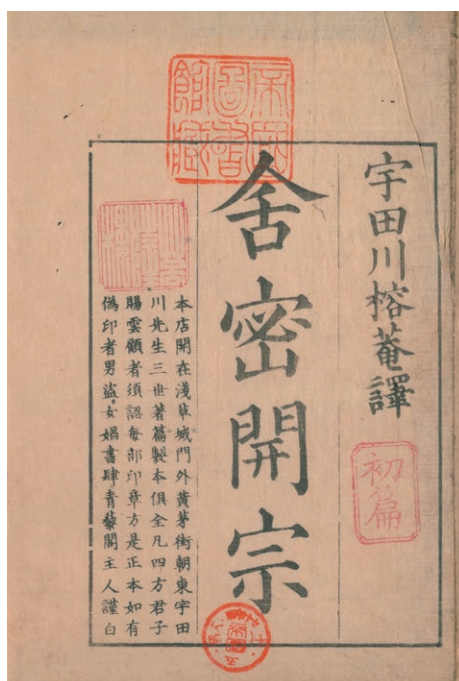 宇田川榕菴譯
初篇
舎密開宗
帝國圖書館藏
本店開在淺草城門外黄茅街朝東宇田
川先生三世著篇製本俱全凡四方君子
賜雲顧者須認每部印章方是正本如有
偽印者男盗女娼書肆青藜閣主人謹白